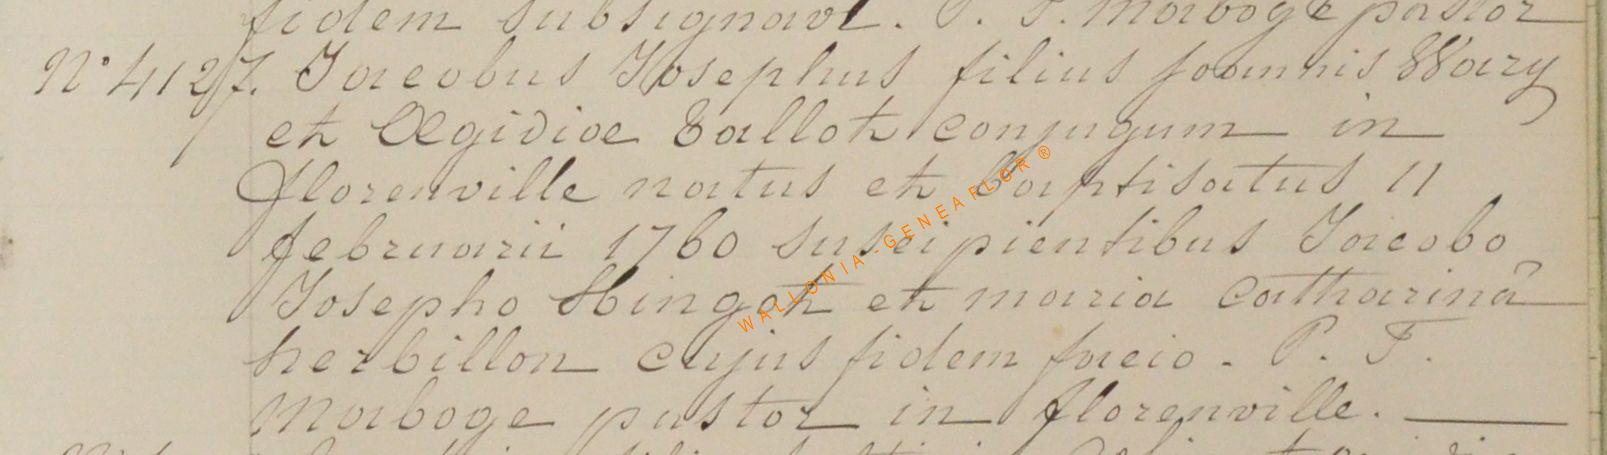 fidem subsignavi. P. F. Maboge pastor
N° 4127. Jacobus Josephus filius joannis Wary
et Ægidiæ Tallot conjugum in
florenville natus et baptisatus 11
februarii 1760 suscipientibus Jacobo
Josepho Hingot et maria Catharinâ
herbillon cujus fidem facio. P. F.
Maboge pastor in florenville.
WALLONIA-GENEAFLOR®